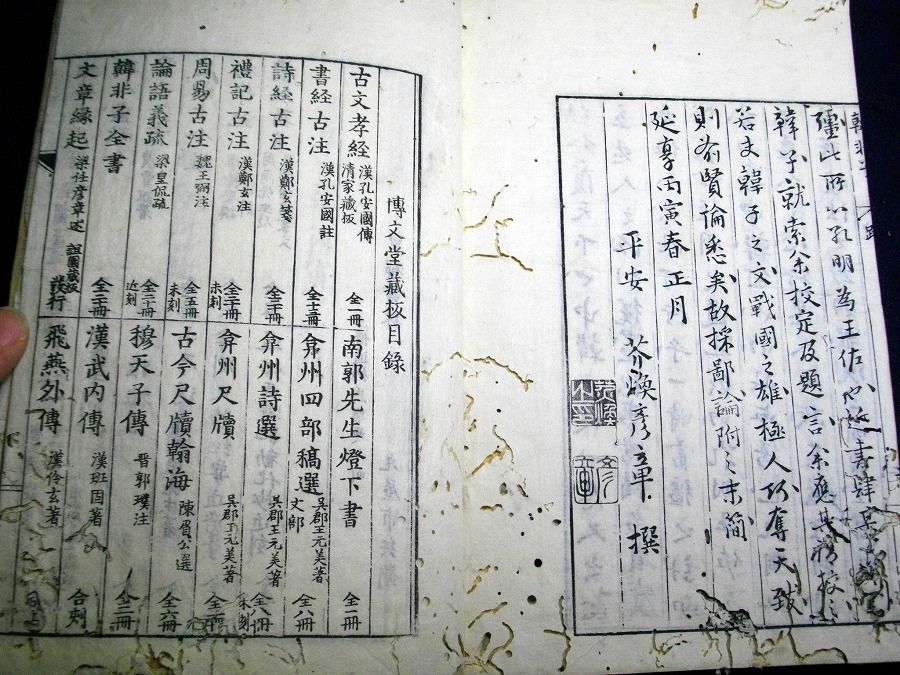 彊此所以孔明為王佐也
韓子就索余挍定及題言余應其
若夫韓子之文戰國之雄極人巧奪天
則前賢論悉矣故採鄙論附之末簡
延享丙寅春正月
平安 芥煥彦章 撰
博文堂藏板目錄
古文孝経 漢孔安國傳 清家藏板 全一冊
書経古注 漢孔安國註 全十三冊
詩経古注 漢鄭玄箋 全二十冊
禮記古注 漢鄭玄注 全二十冊 未刻
周易古注 魏王弼注 全五冊 未刻
論語義疏 梁皇侃疏
韓非子全書 全二十冊 近刻
文章緣起 梁任彦章述 全二冊 發行
南郭先生燈下書 全一冊
弇州四部稿選 文部 吳郡王元美著 全八冊
弇州詩選 吳郡王元美著 全八冊 未刻
弇州尺牘 吳郡王元美著
古今尺牘翰海 陳眉公選 全六冊
穆天子傳 晋郭璞注 全二冊
漢武内傳 漢班固著 合刻
飛燕外傳 漢伶玄著